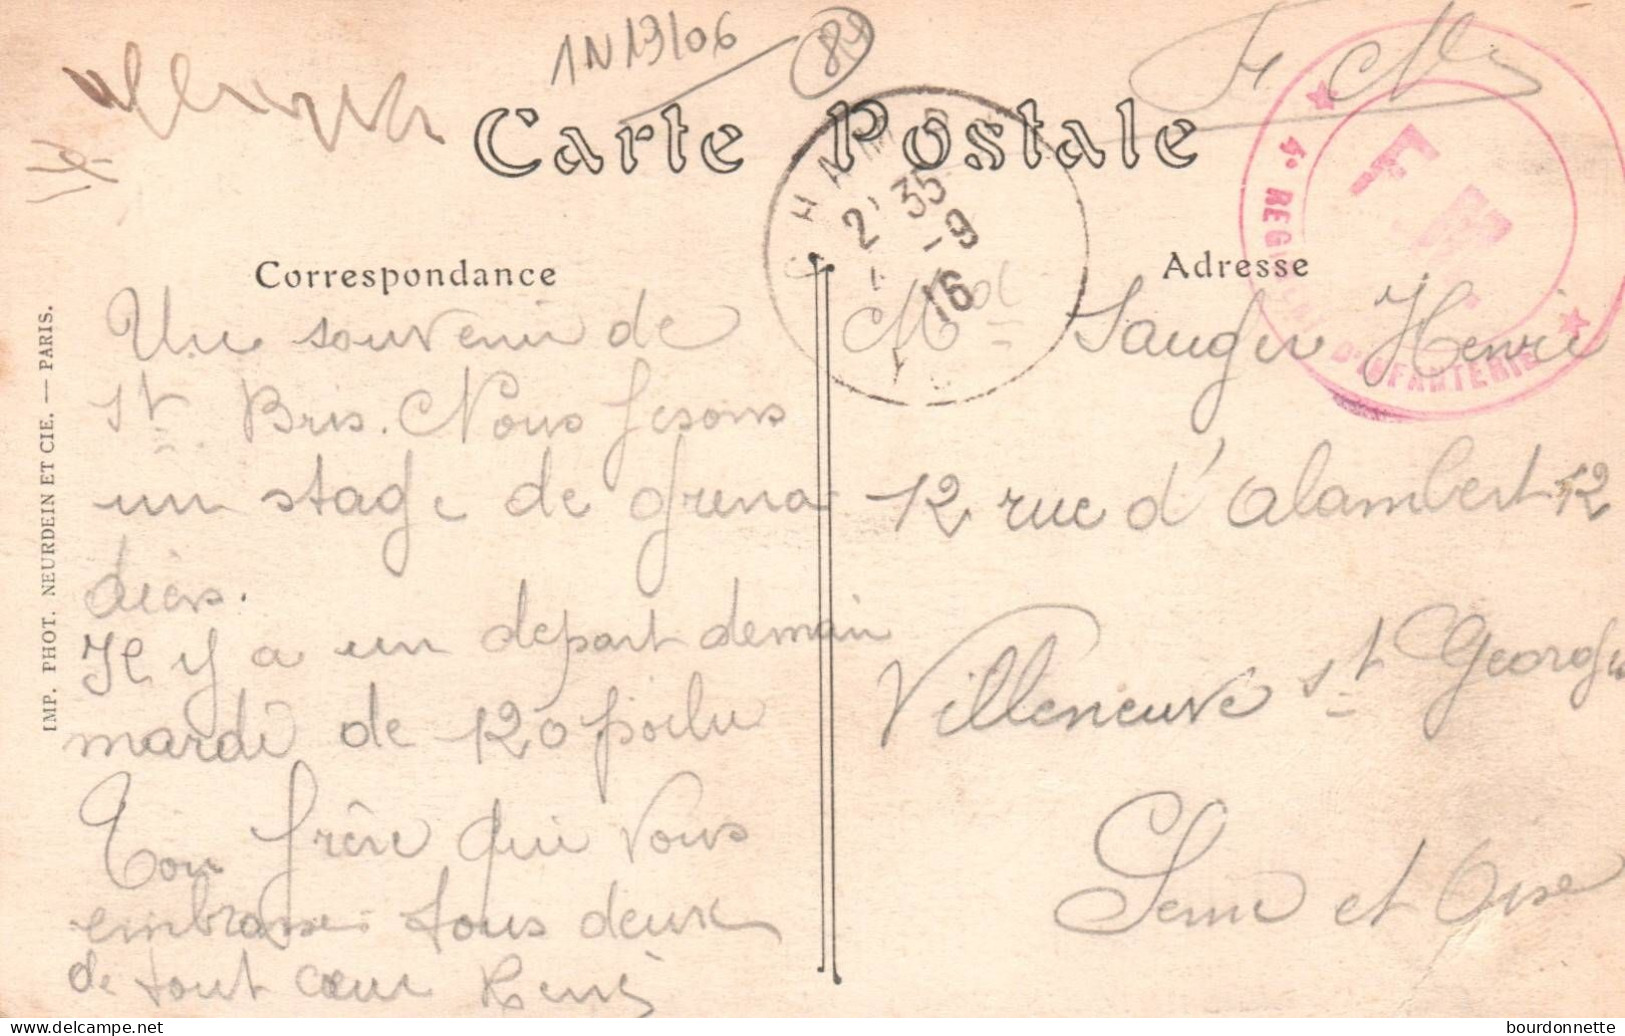 1N13/06
84
Carte Postale
4e REGIMENT D'INFANTERIE
F M
CHAMP
2' 35
-9
16
Correspondance
Un souvenir de
St Bris. Nous fesons
un stage de grena
diers.
Il y a un depart demain
mardi de 120 poilu
Ton frère qui vous
embrasse tous deux
de tout cœur René
Adresse
Henri
12 rue d'alambert 12
Villeneuve St Georges
Seine et Oise
IMP. PHOT. NEURDEIN ET CIE. — PARIS.
www.delcampe.net
bourdonnette